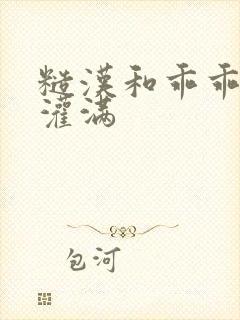 糙漢和乖乖
灌满
包河